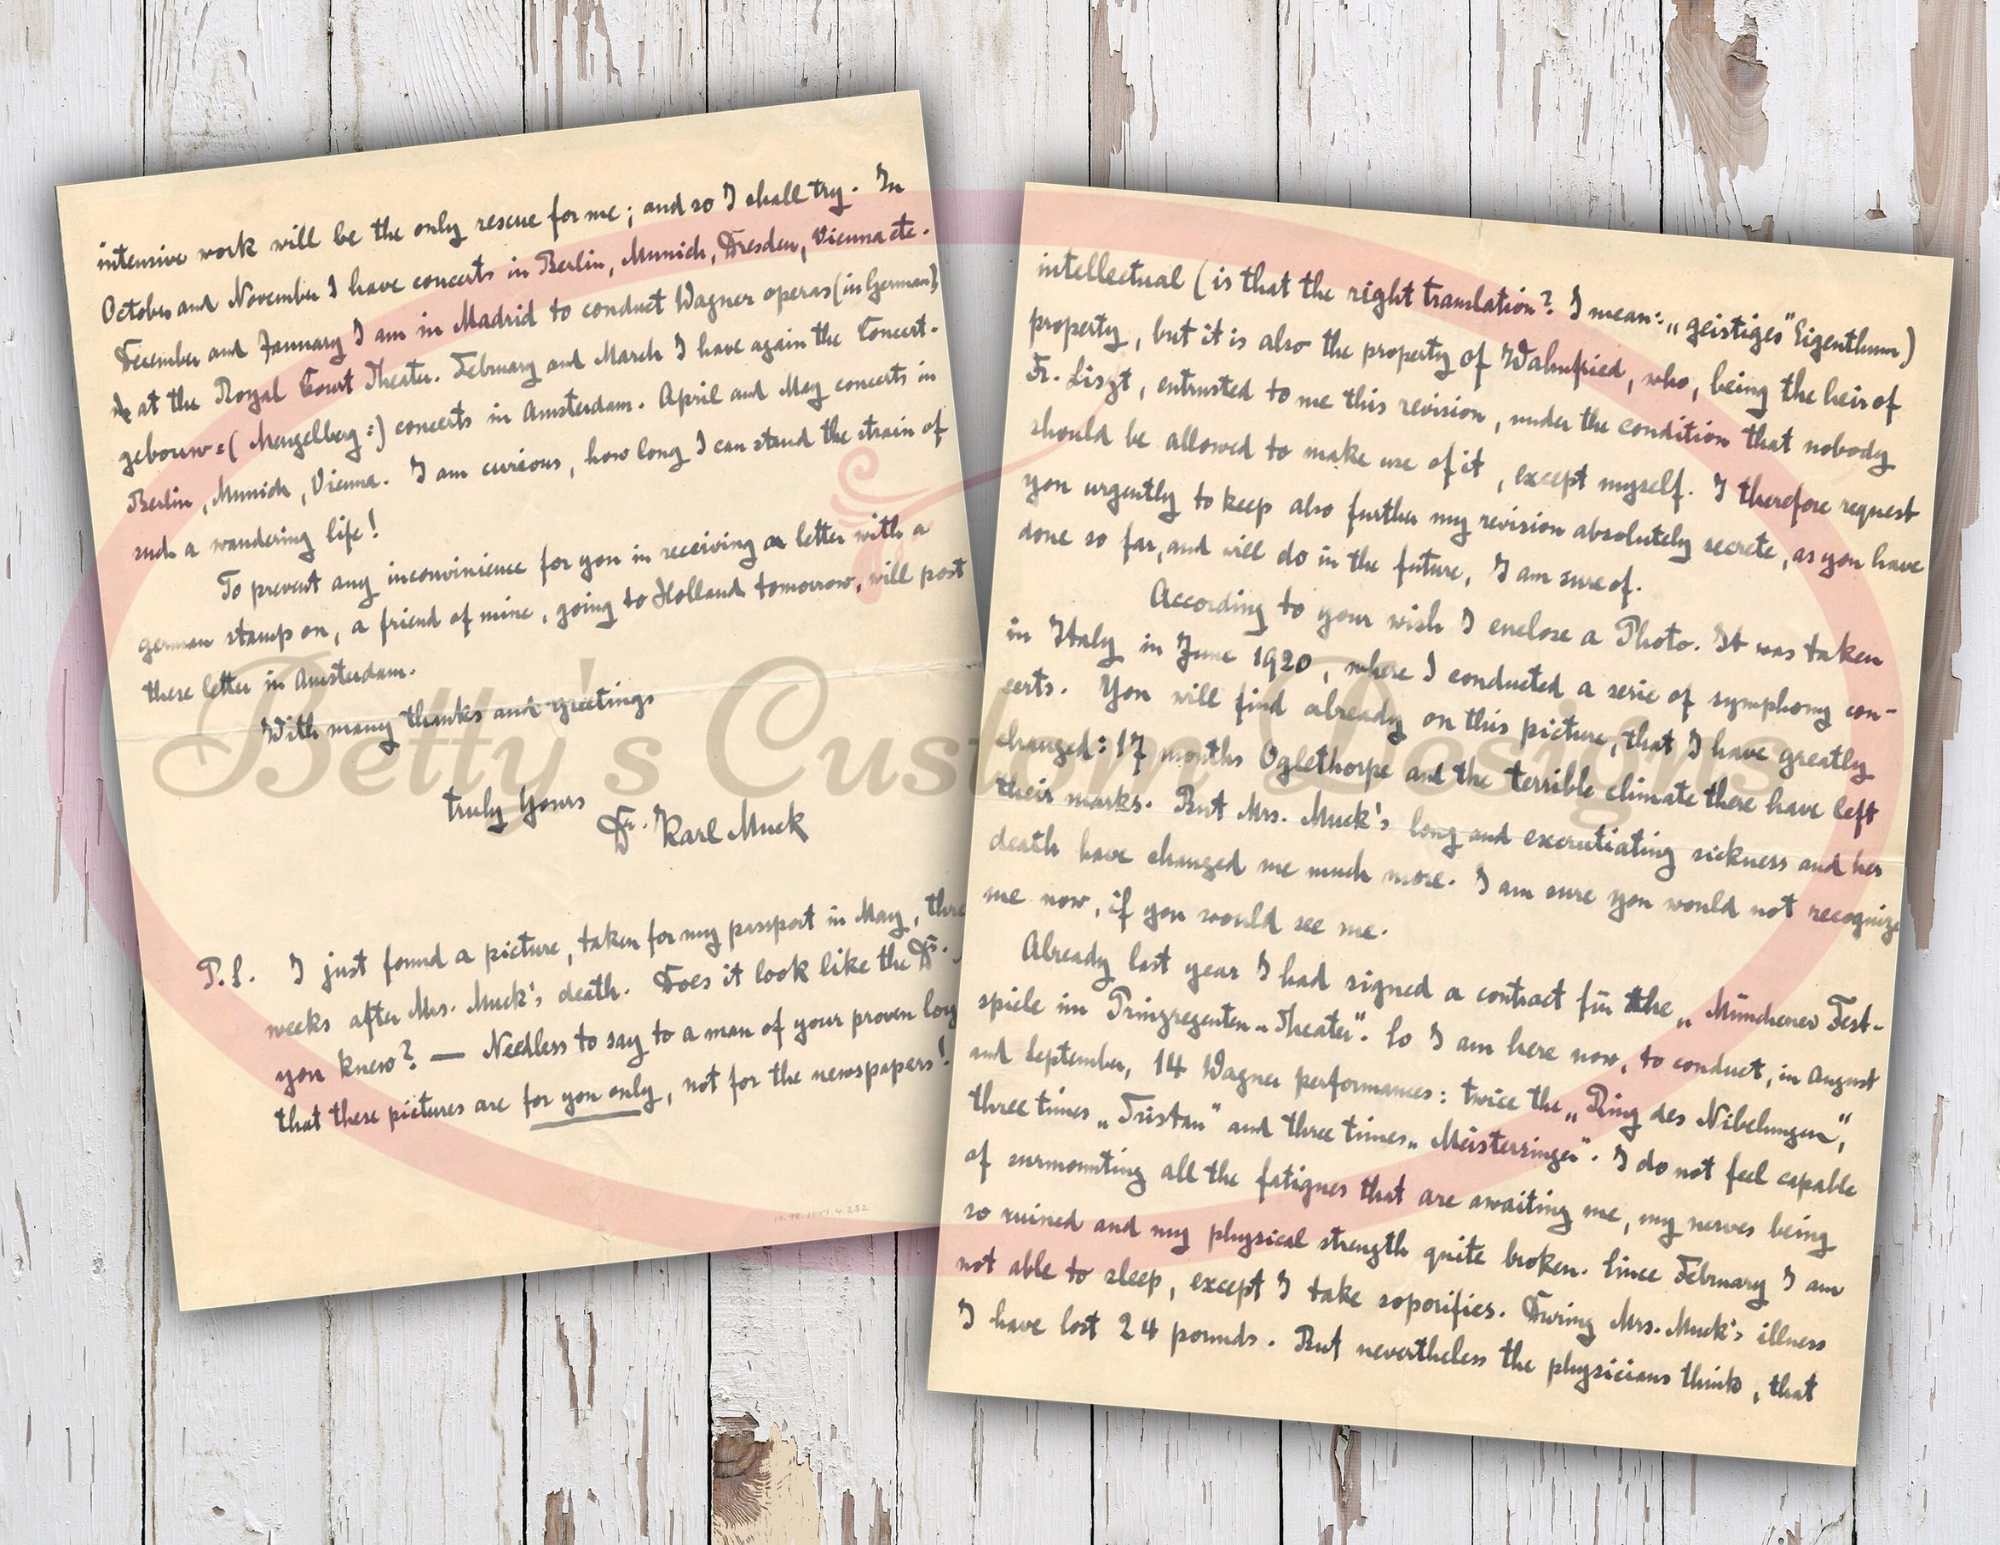 intensive work will be the only rescue for me; and so I shall try. In
October and November I have concerts in Berlin, Munich, Dresden, Vienna etc.
December and January I am in Madrid to conduct Wagner operas (in German)
at the Royal Court Theater. February and March I have again the Concert-
gebouw=(Mengelberg=) concerts in Amsterdam. April and May concerts in
Berlin, Munich, Vienna. I am curious, how long I can stand the strain of
such a wandering life!
To prevent any inconvinience for you in receiving a letter with a
german stamps on, a friend of mine, going to Holland tomorrow, will post
these letter in Amsterdam.
With many thanks and greetings
truly Yours
Dr. Karl Muck
P.S. I just found a picture, taken for my passport in May, three
weeks after Mrs. Muck's death. Does it look like the Dr.
you knew? — Needless to say to a man of your proven
that these pictures are for you only, not for the newspapers!
intellectual (is that the right translation? I mean: „geistiges" Eigenthum)
property, but it is also the property of Wahnfried, who, being the heir of
Fr. Liszt, entrusted to me this revision, under the condition that nobody
should be allowed to make use of it, except myself. I therefore request
you urgently to keep also further my revision absolutely secrete, as you have
done so far, and will do in the future, I am sure of.
According to your wish I enclose a Photo. It was taken
in Italy in June 1920, where I conducted a serie of symphony con-
certs. You will find already on this picture, that I have greatly
changed: 17 months Oglethorpe and the terrible climate there have left
their marks. But Mrs. Muck's long and excrutiating sickness and her
death have changed me much more. I am sure you would not recognize
me now, if you would see me.
Already last year I had signed a contract für the „Münchener Fest-
spiele im Prinzregenten-Theater". So I am here now, to conduct, in August
and September, 14 Wagner performances: twice the „Ring des Nibelungen",
three times „Tristan" and three times „Meistersinger". I do not feel capable
of surmounting all the fatigues that are awaiting me, my nerves being
so ruined and my physical strength quite broken. Since February I am
not able to sleep, except I take soporifics. During Mrs. Muck's illness
I have lost 24 pounds. But nevertheless the physicians think, that
Betty's Custom Designs